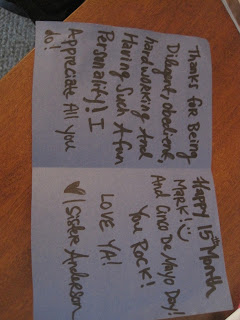 Thanks for Being
Diligent, obedient,
hardworking And
Having Such A fun
Personality! I
Appreciate All you
do!
Happy 15th Month
Mark!
And Cinco De Mayo Day!
You Rock!
LOVE YA!
Sister Anderson